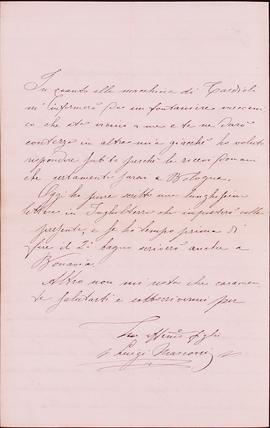 In quanto alla macchina di Tardioli
m'informerò da un fontaniere meccani
co che sta vicino a me e te ne darò
contezza in altra mia giacchè ho voluto
risponder subito perchè la riceva domani
che certamente sarai a Bologna.
Oggi ho pure scritto una lunghissima
lettera in Inghilterra che imposterò colla
presente, e se ho tempo prima di
fare il 2º bagno scriverò anche a
Altro non mi resta che caramen
te salutarti e sottoscrivermi per
Tuo affmo figlio
Luigi Marconi